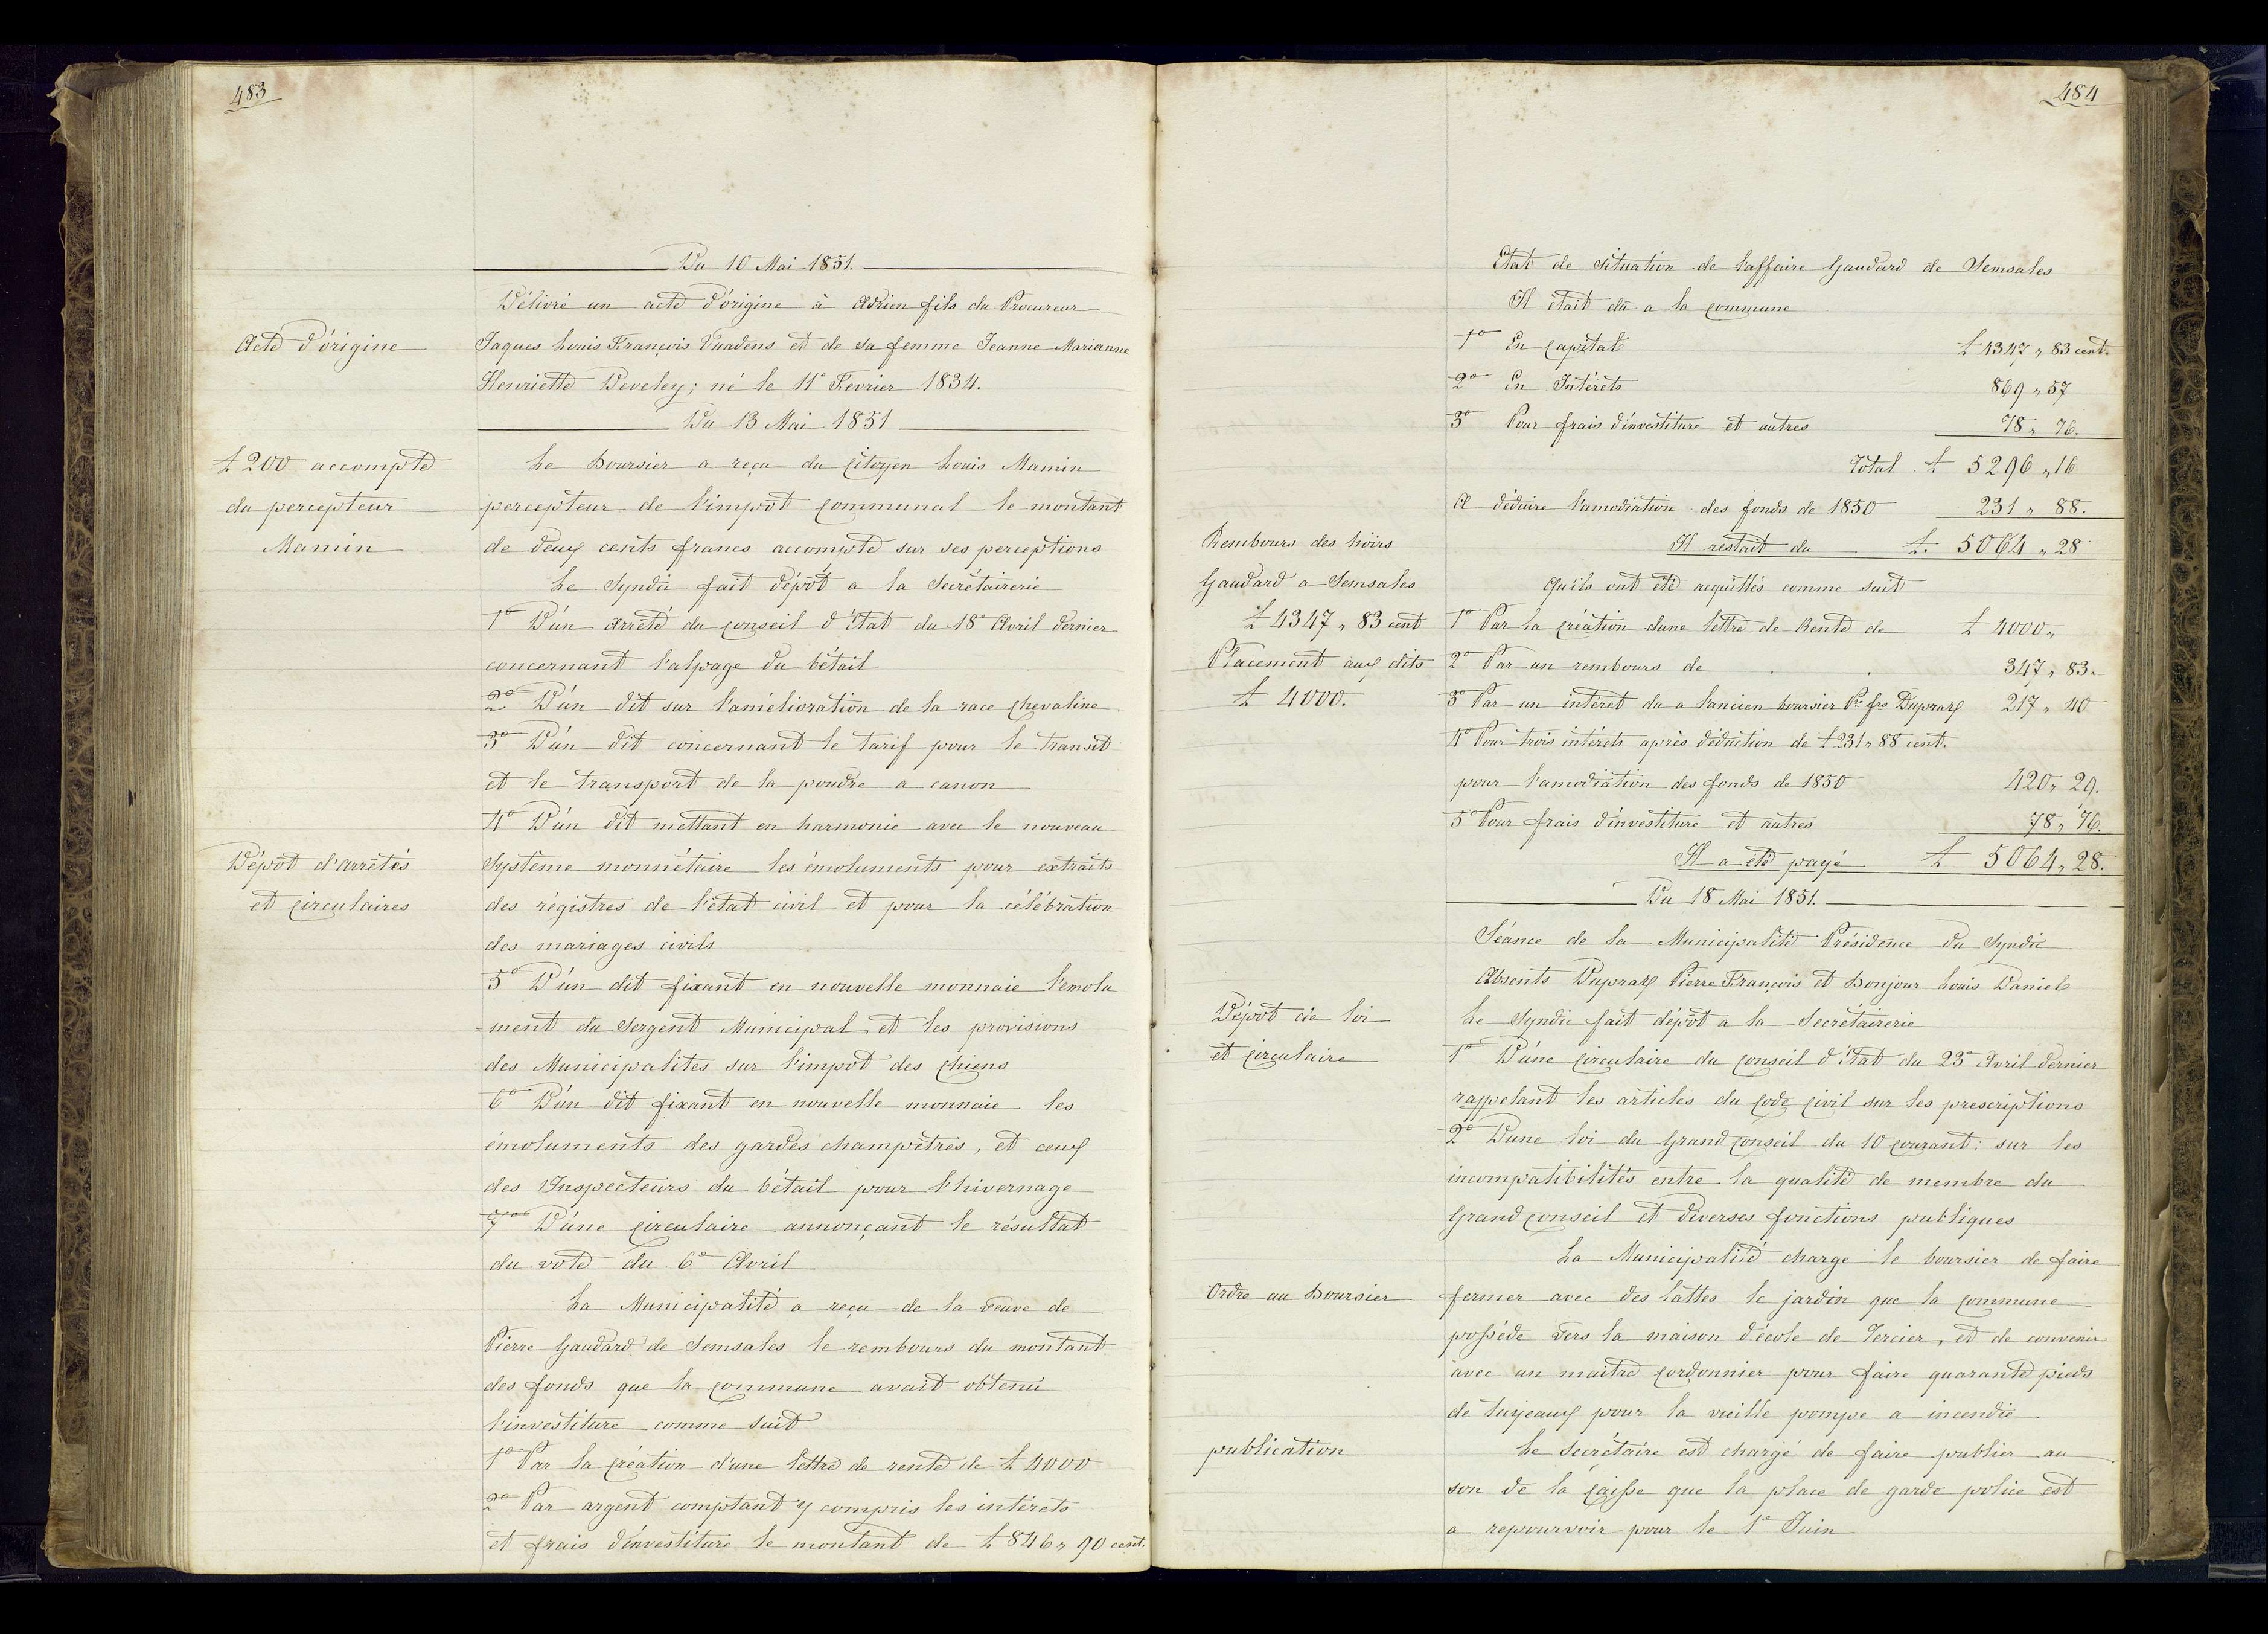 483
Du 10 Mai 1851.
Délivré un acte d'origine à Adrien fils du Procureur
Acte d'origine
Jaques Louis François Vuadens et de sa femme Jeanne Marianne
Henriette Develey; né le 11e Fevrier 1834.
Du 13 Mai 1851
£ 200 accompte
du percepteur
Mamin
Le Boursier a reçu du Citoyen Louis Mamin
percepteur de l'impôt communal le montant
de deux cents francs accompte sur ses perceptions
Le Syndic fait dépôt a la Secrétairerie
1o D'un arrêté du conseil d'Etat du 18e Avril dernier
concernant l'alpage du bétail
2o D'un dit sur l'amélioration de la race chevaline
3o D'un dit concernant le tarif pour le transit
et le transport de la poudre a canon
4o D'un dit mettant en harmonie avec le nouveau
Dépot d'arrêtés
et circulaires
Système monnétaire les émoluments pour extraits
des régistres de l'état civil et pour la célébration
des mariages civils
5o D'un dit fixant en nouvelle monnaie l'emolu
=ment du Sergent Municipal et les provisions
des Municipalites sur l'impôt des chiens
6o D'un dit fixant en nouvelle monnaie les
émoluments des gardes champêtres, et ceux
des Inspecteurs du bétail pour l'hivernage
7o D'une circulaire annonçant le résultat
du vote du 6e Avril
La Municipalité a reçu de la veuve de
Pierre Gaudard de Semsales le rembours du montant
des fonds que la commune avait obtenu
l'investiture comme suit
1o Par la création d'une lettre de rente de £ 4000
2o Par argent comptant y compris les intérets
et frais d'investiture le montant de £ 846 „ 90 cent.
484
Etat de situation de l'affaire Gaudard de Semsales
Il était dû a la commune
1o En Capital £ 4347 „ 83 cent.
2o En Intérêts 869 „ 57
3o Pour frais d'investiture et autres 78 „ 76.
Total £ 5296 „ 16
A déduire l'amodiation des fonds de 1850 231 „ 88.
Il restait du £. 5064 „ 28
Rembours des hoirs
Gaudard a Semsales
£ 4347 „ 83 cent
Placement aux dits
£ 4000.
Qu'ils ont été acquittés comme suit
1o Par la création dune lettre de Rente de £ 4000 „
2o Par un rembours de . . 347 „ 83.
3o Par un intéret du a l'ancien boursier Pre frs Dupraz 217 „ 40
4o Pour trois intérets après déduction de £ 231 „ 88 cent.
pour l'amodiation des fonds de 1850 420 „ 29.
5o Pour frais d'investiture et autres 78 „ 76.
Il a été payé £ 5064 „ 28.
Du 18 Mai 1851.
Séance de la Municipalité Présidence du Syndic
Absents Dupraz Pierre François et Bonjour Louis Daniel
Dépot de loi
et circulaire
Le Syndic fait dépôt a la Secrétairerie
1o D'une circulaire du conseil d'Etat du 23e Avril dernier
rappelant les articles du code civil sur les prescriptions
2o Dune loi du Grand conseil du 10 courant: sur les
incompatibilités entre la qualité de membre du
Grand conseil et diverses fonctions publiques
La Municipalité charge le boursier de faire
Ordre au Boursier
fermer avec des lattes le jardin que la commune
possède vers la maison d'école de Tercier, et de convenir
avec un maitre cordonnier pour faire quarante pieds
de tuyeaux pour la vieille pompe a incendie
publication
Le Secrétaire est chargé de faire publier au
son de la caisse que la place de garde police est
a repourvoir pour le 1e Juin